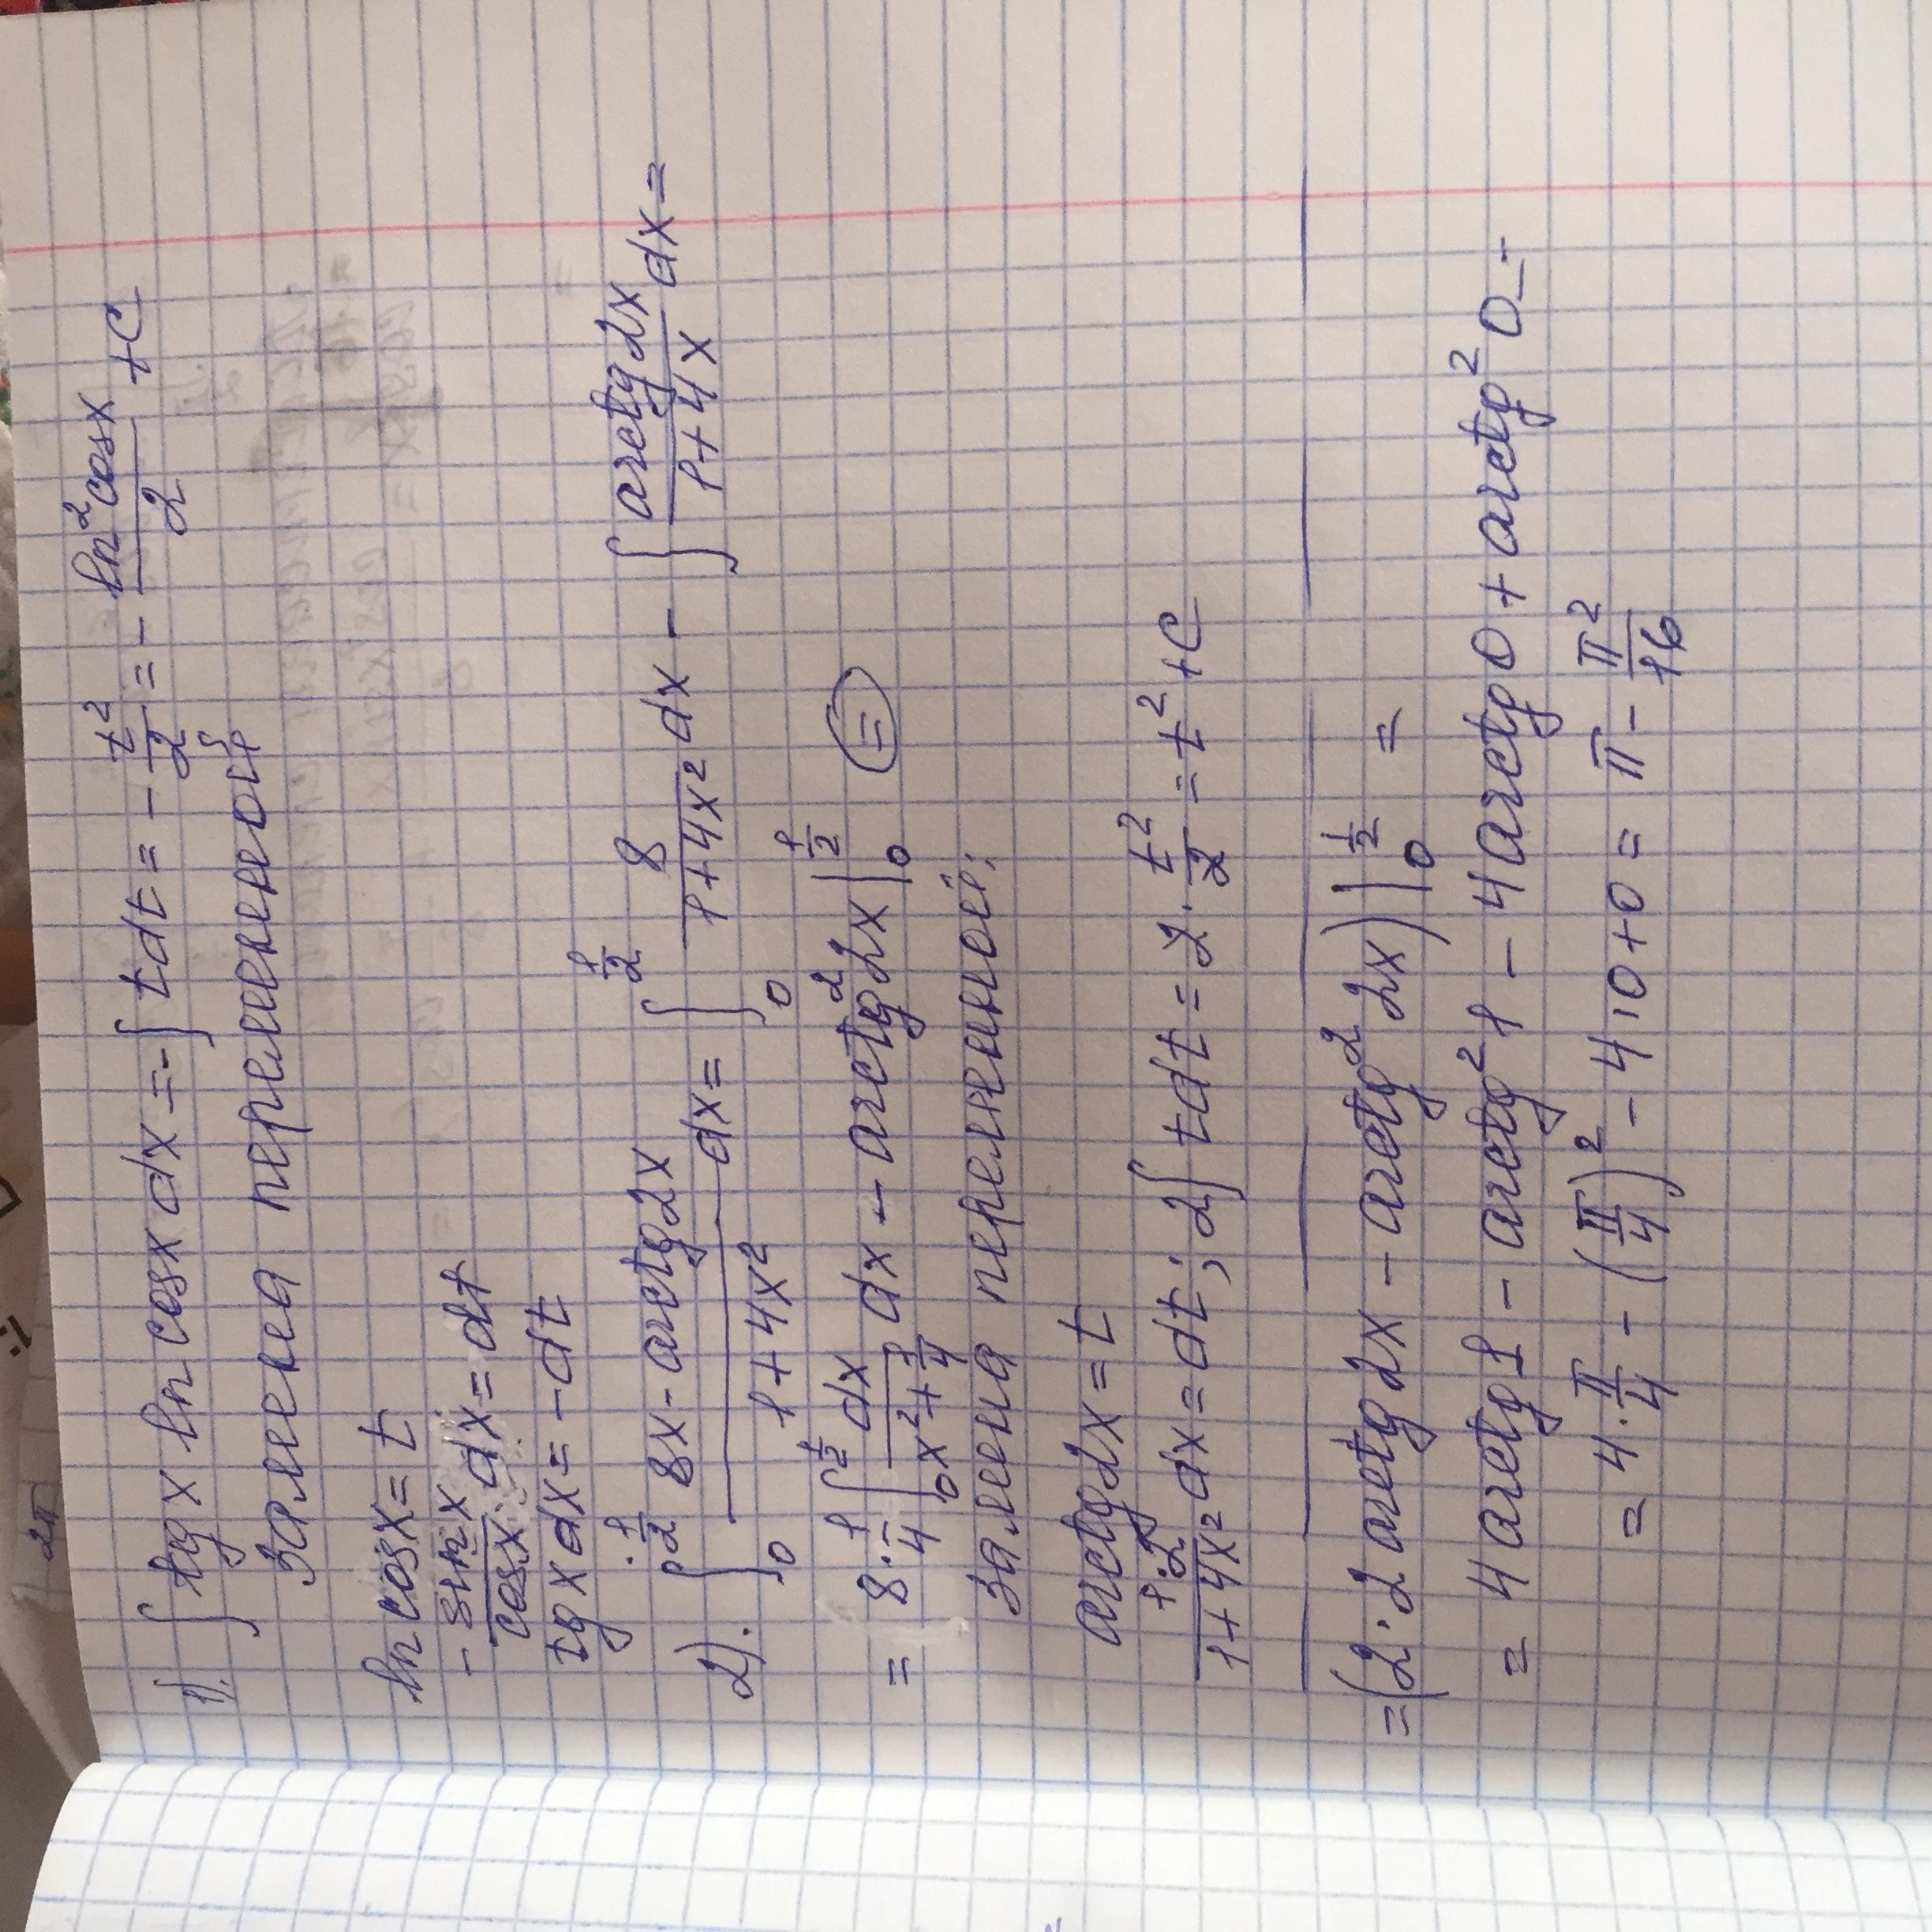 1). ∫ tg x ln cos x dx = - ∫ t dt = - t²/2 = - ln² cos x / 2 + C
Замена переменной
ln cos x = t
- sin x / cos x · dx = dt
tg x dx = - dt
2). ∫₀^{1/2} (8x - arctg 2x)/(1+4x²) dx = ∫₀^{1/2} 8/(1+4x²) dx - ∫ arctg 2x/(1+4x) dx =
= 8 · 1/4 ∫₀^{1/2} dx/(x² + 1/4) dx - arctg² 2x |₀^{1/2} (=)
Замена переменной:
arctg 2x = t
1·2/(1+4x²) dx = dt; 2∫ t dt = 2 · t²/2 = t² + C
= (2·2 arctg 2x - arctg² 2x) |₀^{1/2} =
= 4 arctg 1 - arctg² 1 - 4 arctg 0 + arctg² 0 =
= 4 · π/4 - (π/4)² - 4·0 + 0 = π - π²/16